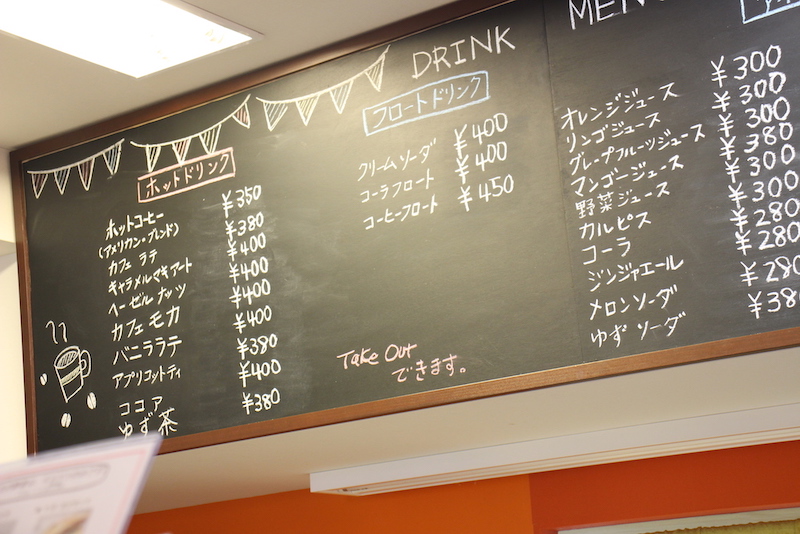 DRINK
MENU
ホットドリンク
ホットコーヒー ¥350
(アメリカン・ブレンド)
カフェ ラテ ¥380
キャラメルマキアート ¥400
ヘーゼルナッツ ¥400
カフェ モカ ¥400
バニララテ ¥400
アプリコットティ ¥380
ココア ¥400
ゆず茶 ¥380
フロートドリンク
クリームソーダ ¥400
コーラフロート ¥400
コーヒーフロート ¥450
Take Out
できます。
オレンジジュース ¥300
リンゴジュース ¥300
グレープフルーツジュース ¥300
マンゴージュース ¥380
野菜ジュース ¥300
カルピス ¥300
コーラ ¥280
ジンジャエール ¥280
メロンソーダ ¥280
ゆずソーダ ¥380